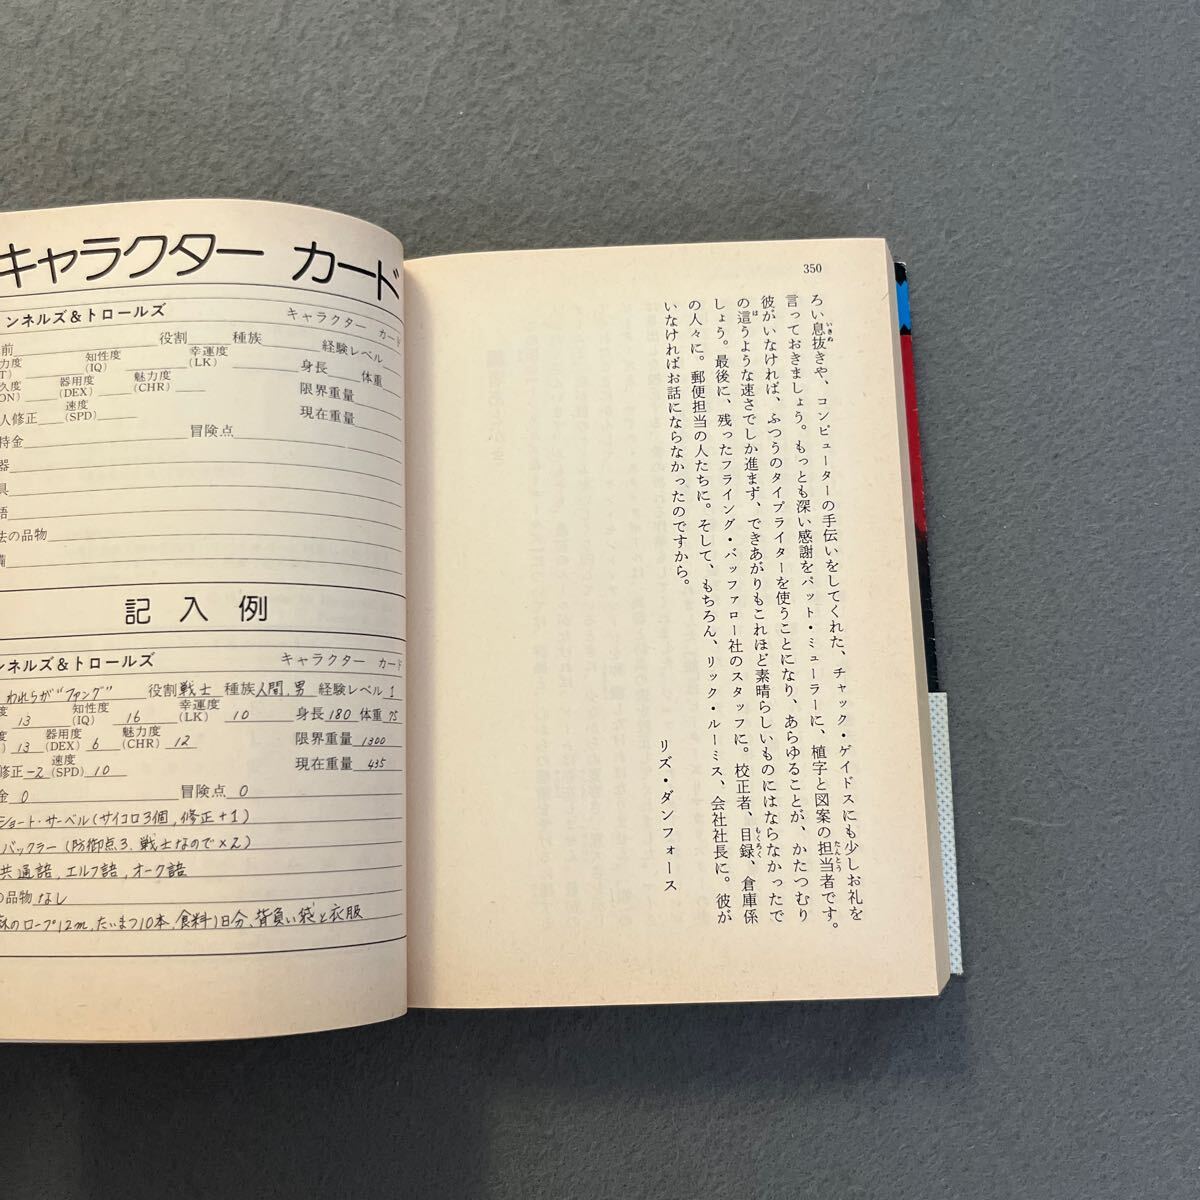 キャラクター カード
ンネルズ&トロールズ キャラクター カード
前 役割 種族 経験レベル
力度 知性度 (IQ) 幸運度 (LK) 身長 体重
久度 ON) 器用度 (DEX) 魅力度 (CHR) 限界重量
人修正 速度 (SPD) 現在重量
持金 冒険点
器
具
語
法の品物
備
記入例
ンネルズ&トロールズ キャラクター カード
われらが“ファング” 役割 戦士 種族 人間,男 経験レベル 1
度 13 知性度 (IQ) 16 幸運度 (LK) 10 身長 180 体重 75
度 13 器用度 (DEX) 6 魅力度 (CHR) 12 限界重量 1300
修正 -2 速度 (SPD) 10 現在重量 435
金 0 冒険点 0
ショート・サーベル(サイコロ3個,修正+1)
バックラー(防御点3.戦士なので×2)
共通語,エルフ語,オーク語
の品物 なし
のロープ12m,たいまつ10本,食料1日分,背負い袋と衣服
350
ろい息抜きや、コンピューターの手伝いをしてくれた、チャック・ゲイドスにも少しお礼を
言っておきましょう。もっとも深い感謝をパット・ミューラーに、植字と図案の担当者です。
彼がいなければ、ふつうのタイプライターを使うことになり、あらゆることが、かたつむり
の這うような速さでしか進まず、できあがりもこれほど素晴らしいものにはならなかったで
しょう。最後に、残ったフライング・バッファロー社のスタッフに。校正者、目録、倉庫係
の人々に。郵便担当の人たちに。そして、もちろん、リック・ルーミス、会社社長に。彼が
いなければお話にならなかったのですから。
リズ・ダンフォース